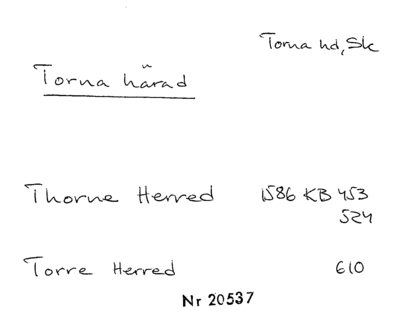 Torna hd, Sk
Torna härad
Thorne Herred 1586 KB 453
524
Torre Herred 610
Nr 20537